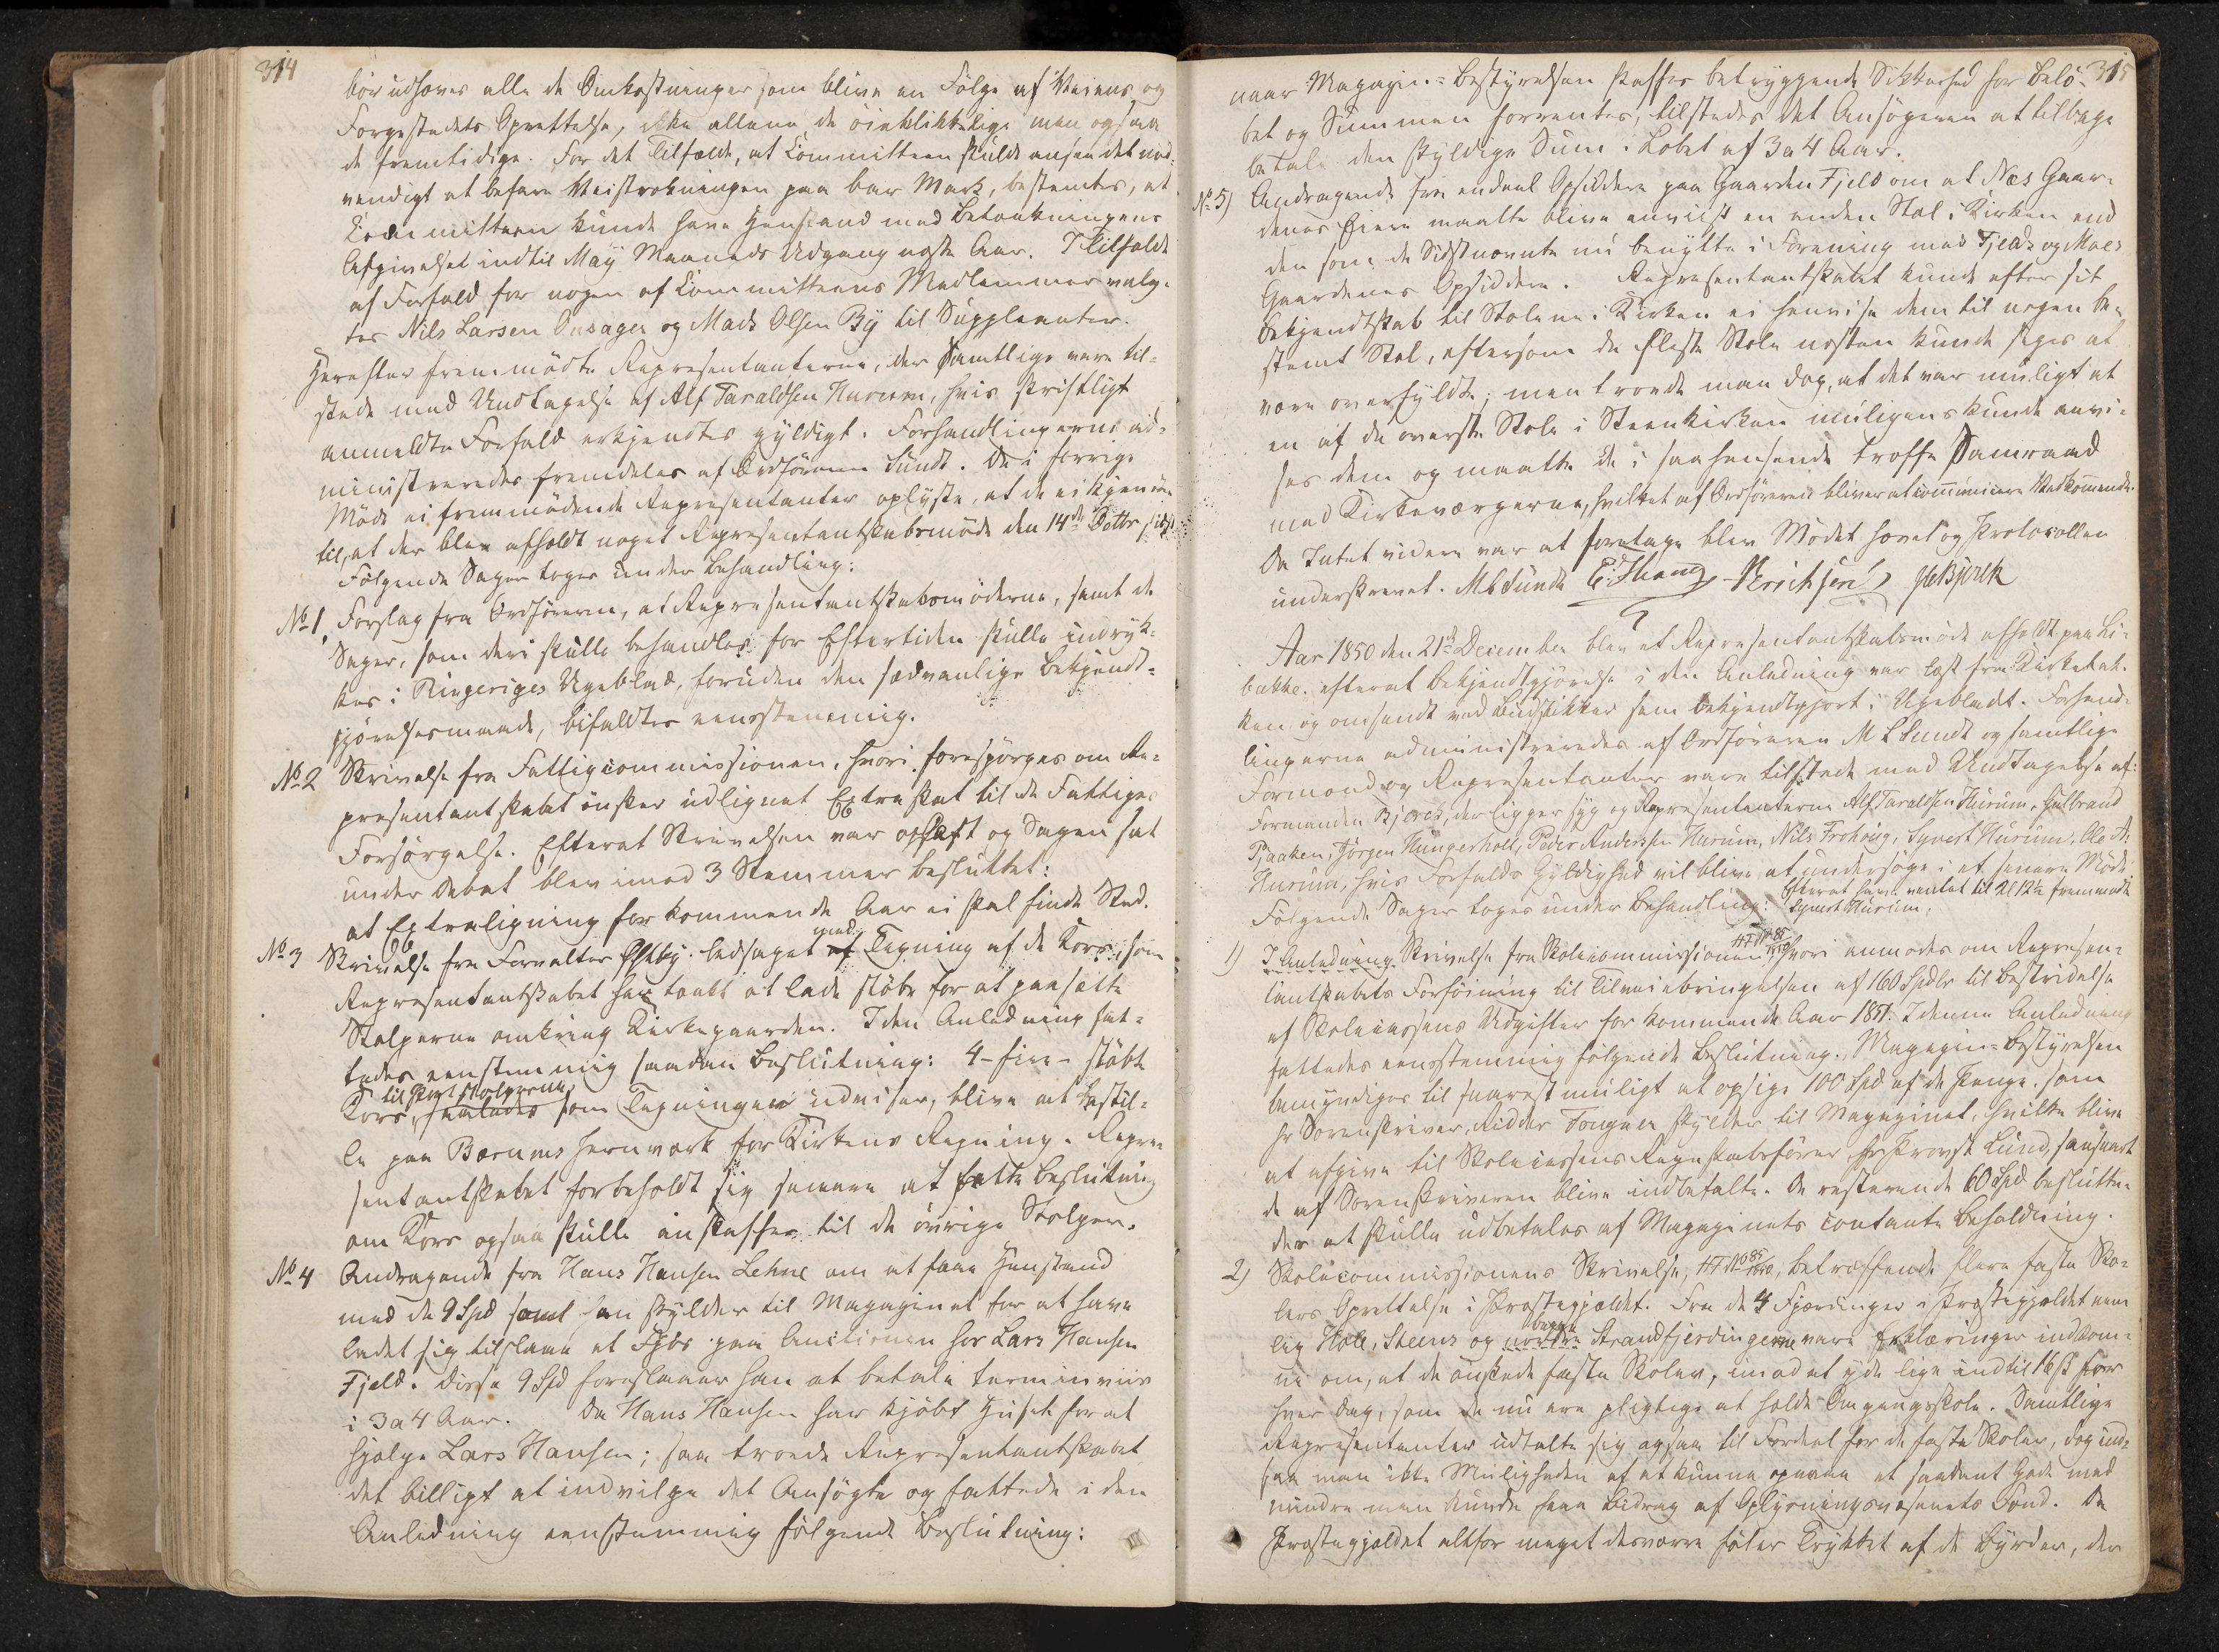 314
bör udhæves alle de Omkostninger som blive en Fölge af Veiens og
Forgestedets Oprettelse, ikke allene de öieblikkelige men ogsaa
de fremtidige. For det Tilfælde, at Committeen skulde ansee det nöd-
vendigt at befare Veistrækningen paa bar Mark, bestemtes, at
Committeen kunde have Henstand med Betænkningens
Afgivelse indtil May Maaneds Udgang næste Aar. I Tilfælde
af Forfald for nogen af Committeens Medlemmer valg-
tes Nils Larsen Onsager og Mads Olsen By til Suppleanter.
Herefter fremmödte Repræsentanterne, der Samtlige vare til-
stede med Undtagelse af Alf Taraldsen Hurum, hvis skriftligt
anmeldte Forfald erkjendtes gyldigt. Forhandlingerne ad-
ministreredes fremdeles af Ordföreren Sundt. De i forrige
Möde ei fremmödende Repræsentanter oplyste, at de ei kjendte
til, at der blev afholdt noget Repræsentantskabsmöde den 14de Octbr sidst
Fölgende Sager toges under Behandling:
No 1, Forslag fra Ordföreren, at Repræsentantskabsmöderne, samt de
Sager, som deri skulle behandles for Eftertiden skulle indryk-
kes i Ringeriges Ugeblad, foruden den sædvanlige Bekjendt-
gjörelsesmaade, bifaldtes eenstemmig.
No 2 Skrivelse fra Fattigcommissionen, hvori forespörges om Re-
præsentantskabet önsker udlignet Extraskat til de Fattiges
Forsörgelse. Efterat Skrivelsen var oplæst og Sagen sat
under Debat blev imod 3 Stemmer besluttet:
at Extraligning for kommende Aar ei skal finde Sted.
No 3 Skrivelse fra Forvalter Östby ledsaget med af Tegning af de Kors som
Repræsentantskabet har tænkt at lade stöbe for at paasætte
Stolperne omkring Kirkegaarden. I den Anledning fat-
tedes eenstemmig saadan Beslutning: 4 - fire - stöbte
Kors, til Port stolperne saaledes som Tegningen udviser, blive at bestil-
le paa Bærums Jernværk for Kirkens Regning. Repræ-
sentantskabet forbeholdt sig senere at fatte Beslutning
om Kors ogsaa skulle anskaffes til de övrige Stolper.
No 4 Andragende fra Hans Hansen Lehne om at faae Henstand
med de 9 Spd som han skylder til Magazinet for at have
ladet sig tilslaae et Fjös paa Auctionen hos Lars Hansen
Fjeld. Disse 9 Spd foreslaaer han at betale terminviis
i 3 a 4 Aar. Da Hans Hansen har kjöbt Huset for at
hjælpe Lars Hansen; saa troede Repræsentantskabet
det billigt at indvilge det Ansögte og fattede i den
Anledning eenstemmig fölgende Beslutning:
315
naar Magazin-Bestyrelsen skaffes betryggende Sikkerhed for Belö-
bet og Summen forrentes, tilstedes det Ansögeren at tilbage
betale den skyldige Sum i Löbet af 3 a 4 Aar.
No 5) Andragende fra endeel Opsiddere paa Gaarden Fjeld om at Næs Gaar-
denes Eiere maatte blive anviist en anden Stol i Kirken end
den som de Sidstnævnte nu benytte i Forening med Fjelds og Moes
Gaardenes Opsiddere. Repræsentantskabet kunde efter sit
Bekjendtskab til Stolene i Kirken ei henvise dem til nogen be-
stemt Stol, eftersom de fleste Stole næsten kunde siges at
være overfyldte; men troede man dog, at det var muligt at
en af de överste Stole i Steenkirken muligens kunde anvi-
ses dem og maatte de i saa henseende træffe Samraad
med Kirkeværgerne, hvilket af Ordföreren bliver at com̄unicere Vedkom̄ende.
Da Intet videre var at foretage blev Mödet hævet og Protocollen
underskrevet. M L Sundt E: Thang
Aar 1850 den 21de December blev et Repræsentantskabsmöde afholdt paa Li-
bakke. efterat Bekjendtgjörelse i den Anledning var læst fra Kirkebak-
ken og omsendt ved Budstikker samt bekjendtgjort i Ugebladet. Forhand-
lingerne administreredes af Ordföreren M L Sundt og samtlige
Formænd og Repræsentanter vare tilstede med Undtagelse af:
Formanden Bjerck, der ligger syg og Repræsentanterne Alf Taraldsen Hurum, Gulbrand
Tjaaken, Jörgen Hungerholt, Peder Andersen Hurum, Nils Frohöug, Syvert Hurum, Ole A:
Hurum, hvis Forfalds Gyldighed vil blive at undersöge i et senere Möde
Efterat have ventet til Kl 12½ fremmödte
Fölgende Sager toges under Behandling: Syvert Hurum.
1) I Anledning Skrivelse fra Skolecommissionen, H No 85/1850 hvori anmodes om Repræsen-
tantskabets Forföining til Tilveiebringelsen af 160 Spdlr til Bestridelse
af Skolecassens Udgifter for kommende Aar 1851. I denne Anledning
fattedes eenstemmig fölgende Beslutning. Magazin-Bestyrelsen
bemyndiges til snarest muligt at opsige 100 Spd af de Penge, som
Hr Sorenskriver, Ridder Fougner skylder til Magazinet, hvilke blive
at afgive til Skolecassens Regnskabsförer Hr Provst Lund, saasnart
de af Sorenskriveren blive indbetalte. De resterende 60 Spd beslutte-
des at skulle udbetales af Magazinets contante Beholdning.
2) Skolecommissionens Skrivelse, H No 85/1850, betræffende flere faste Sko-
lers Oprettelse i Præstegjældet. Fra de 4 Fjerdinger i Præstegjældet nem-
lig Hole, Steens og begge nordre Strandfjerdingerne vare Erklæringer indkom-
ne om, at de önskede faste Skoler, imod at yde lige indtil 16 ß for
hver Dag, som de nu ere pligtige at holde Omgangsskole. Samtlige
Repræsentanter udtalte sig ogsaa til Fordeel for de faste Skoler, dog ind-
saa man ikke Muligheden af at kunne opnaae et saadant Gode med
mindre man kunde faae Bidrag af Oplysningsvæsenets Fond. Da
Præstegjældet altfor meget desværre föler Trykket af de Byrder, der